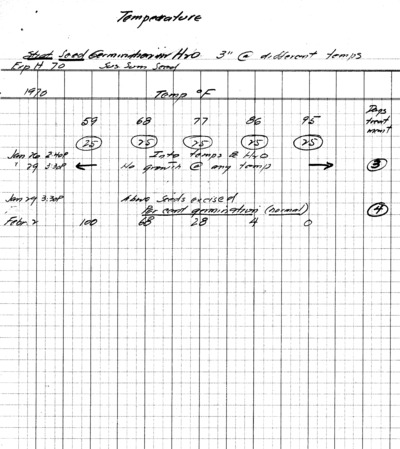 Temperature
Strat Seed Germination in H2O 3" @ different temps
Exp. H 70 Sus Sum Seed
1970 Temp °F
59 68 77 86 95 Days treatment
25 25 25 25 25
Jan 26 2:40P Into temps & H2O
" 29 3:30P No growth @ any temp 3
Jan 29 3:30P Above seeds excised
Per cent germination (normal) 4
Febr. 2 100 68 28 4 0